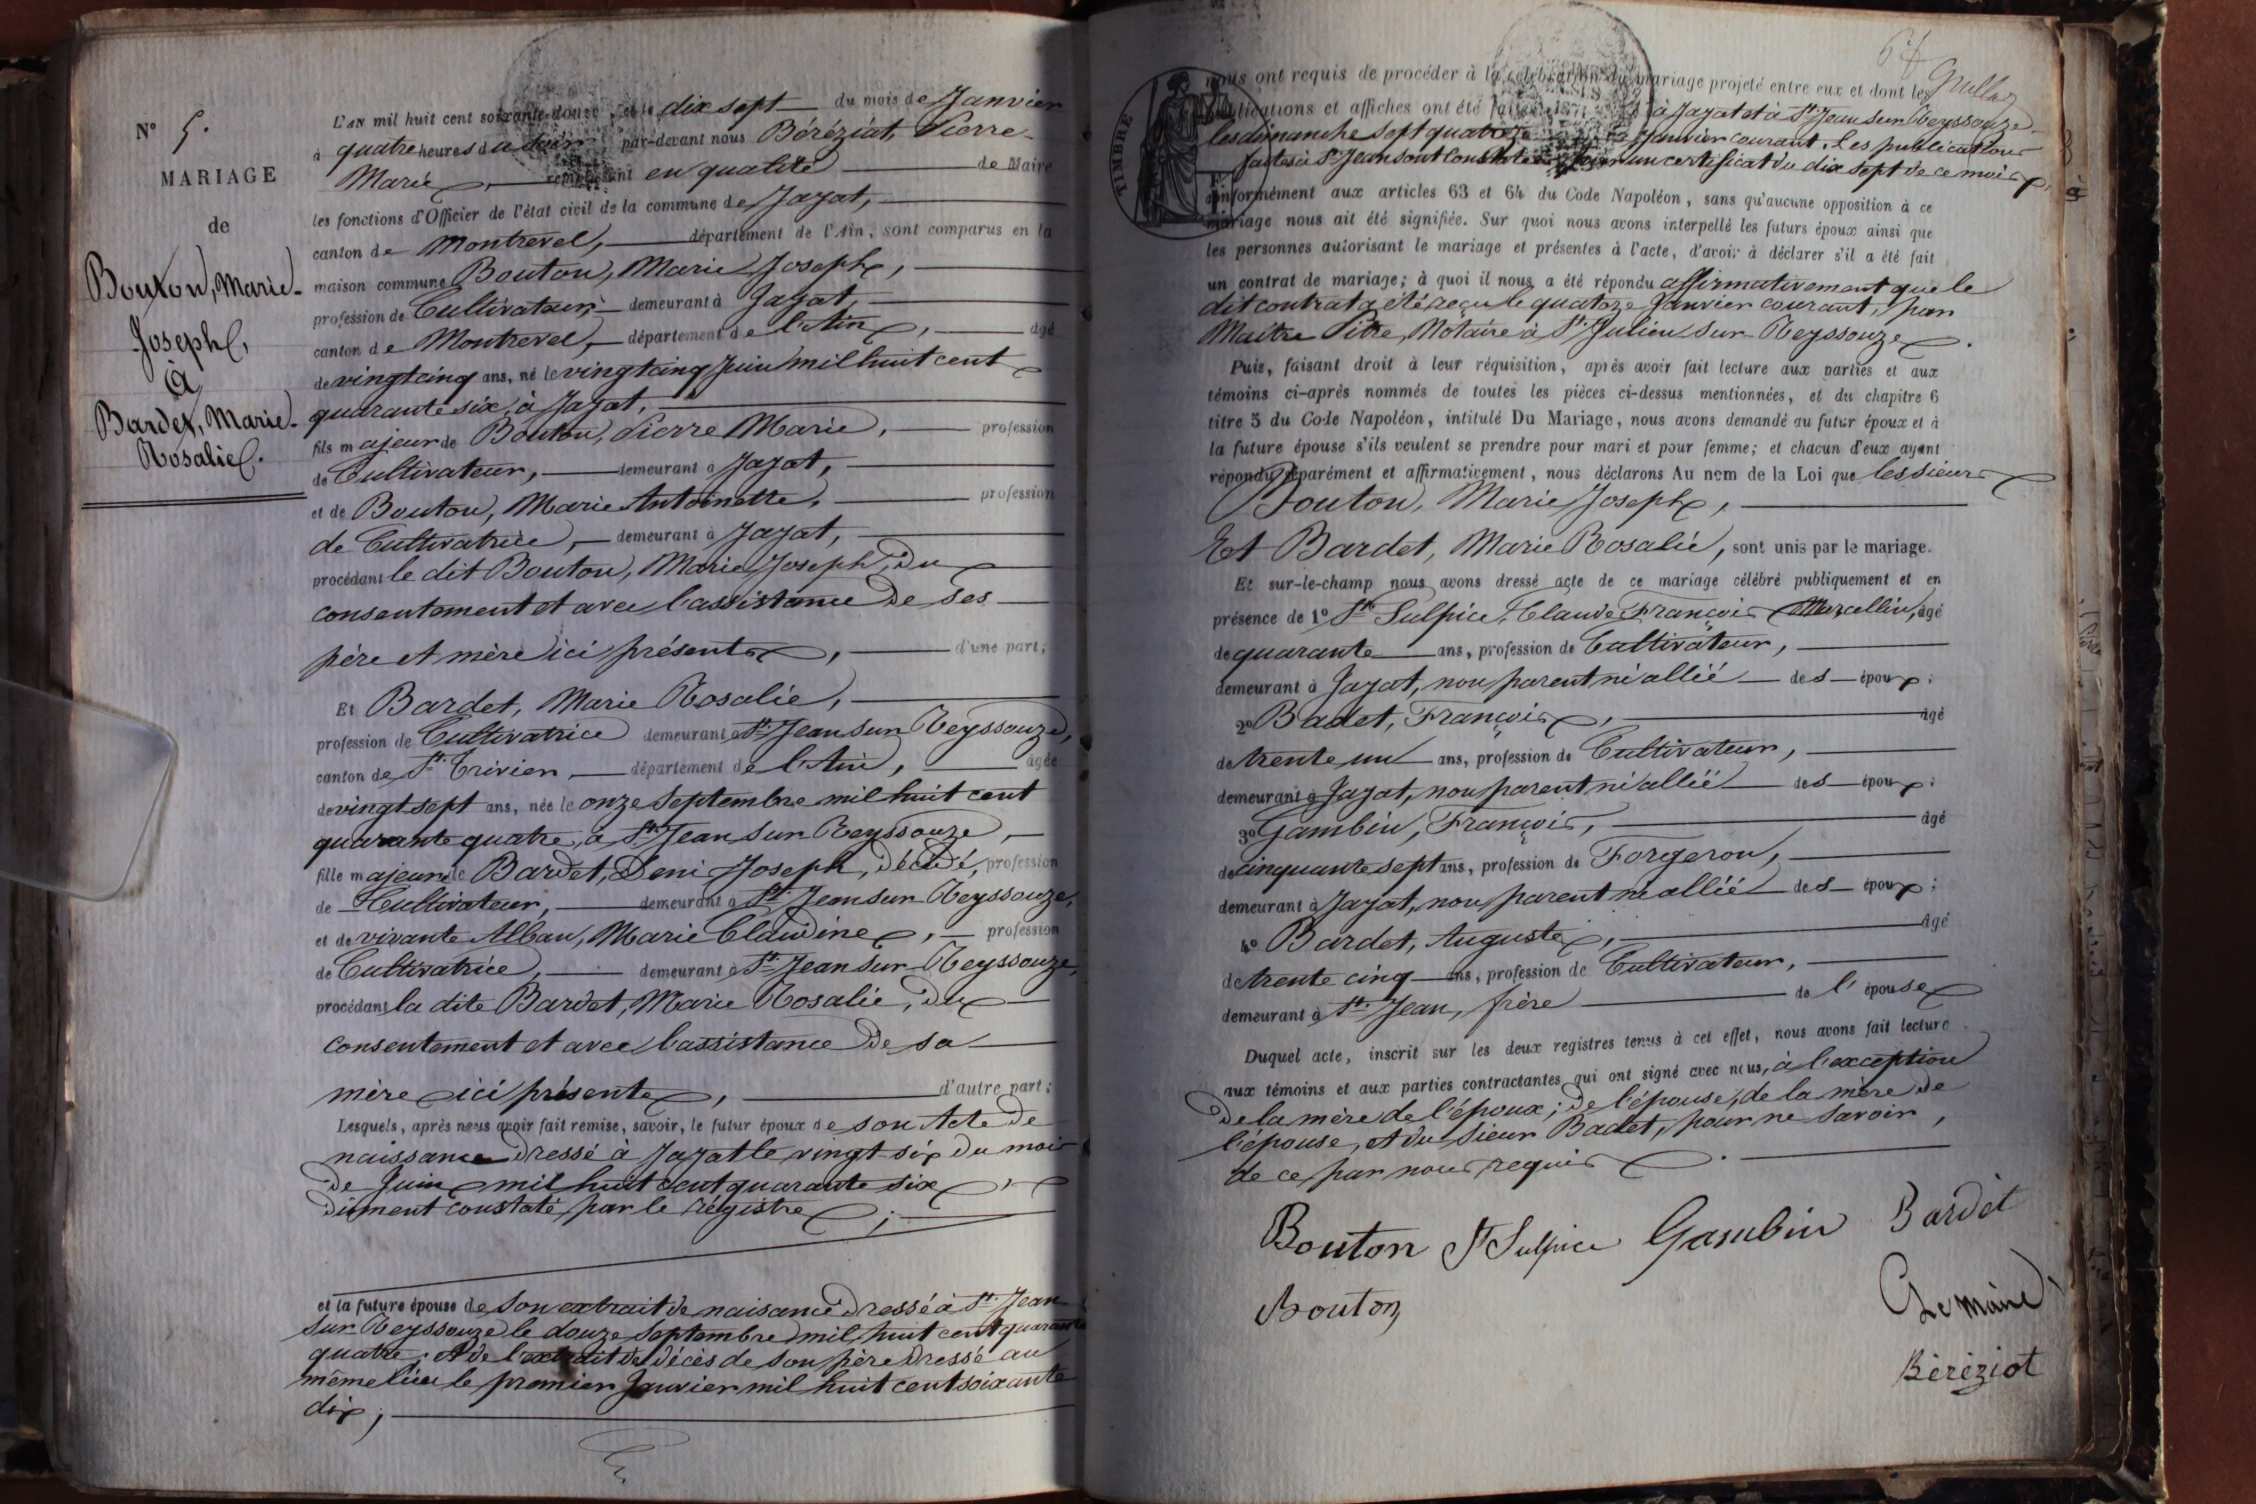 N° 5.
MARIAGE
de
Bouton, Marie-
Joseph,
à
Bardet, Marie-
Rosalie.
L'AN mil huit cent soixante-douze, et le dix sept du mois de Janvier
à quatre heures du soir par-devant nous Béréziat, Pierre-
Marie, remplissant en qualité de Maire
les fonctions d'Officier de l'état civil de la commune de Jayat,
canton de Montrevel, département de l'Ain, sont comparus en la
maison commune Bouton, Marie Joseph,
profession de Cultivateur, demeurant à Jayat,
canton de Montrevel, département de l'Ain, âgé
de vingt cinq ans, né le vingt cinq Juin mil huit cent
quarante six, à Jayat,
fils majeur de Bouton, Pierre Marie, profession
de Cultivateur, demeurant à Jayat,
et de Bouton, Marie Antoinette, profession
de Cultivatrice, demeurant à Jayat,
procédant le dit Bouton, Marie Joseph, du
consentement et avec l'assistance de ses
père et mère ici présents, d'une part;
Et Bardet, Marie Rosalie,
profession de Cultivatrice demeurant à St Jean sur Reyssouze,
canton de St Trivier, département de l'Ain, âgée
de vingt sept ans, née le onze Septembre mil huit cent
quarante quatre, à St Jean sur Reyssouze,
fille majeure de Bardet, Deni Joseph, décédé, profession
de Cultivateur, demeurant à St Jean sur Reyssouze,
et de vivante Alban, Marie Claudine, profession
de Cultivatrice, demeurant à St Jean sur Reyssouze,
procédant la dite Bardet, Marie Rosalie, du
consentement et avec l'assistance de sa
mère ici présente, d'autre part;
Lesquels, après nous avoir fait remise, savoir, le futur époux de son Acte de
naissance dressé à Jayat le vingt six du mois
de Juin mil huit cent quarante six
dûment constaté par le régistre;
et la future épouse de son extrait de naisance dressé à St Jean
sur Reyssouze le douze Septembre mil huit cent quarante
quatre; Et de l'extrait de décès de son père dressé au
même lieu le premier Janvier mil huit cent soixante
dix;
TIMBRE
nous ont requis de procéder à la célébration du mariage projeté entre eux et dont les
publications et affiches ont été faites à Jayat et à St Jean sur Reyssouze
les dimanche sept quatorze Janvier courant. Les publications
faites à St Jean sont constatées par un certificat du dix sept de ce mois
conformément aux articles 63 et 64 du Code Napoléon, sans qu'aucune opposition à ce
mariage nous ait été signifiée. Sur quoi nous avons interpellé les futurs époux ainsi que
les personnes autorisant le mariage et présentes à l'acte, d'avoir à déclarer s'il a été fait
un contrat de mariage; à quoi il nous a été répondu affirmativement que le
dit contrat a été reçu le quatoze Janvier courant, par
Maître Pitre, Notaire à St Julien sur Reyssouze.
Puis, faisant droit à leur réquisition, après avoir fait lecture aux parties et aux
témoins ci-après nommés de toutes les pièces ci-dessus mentionnées, et du chapitre 6
titre 5 du Code Napoléon, intitulé Du Mariage, nous avons demandé au futur époux et à
la future épouse s'ils veulent se prendre pour mari et pour femme; et chacun d'eux ayant
répondu séparément et affirmativement, nous déclarons Au nom de la Loi que les sieurs
Bouton, Marie Joseph,
Et Bardet, Marie Rosalie, sont unis par le mariage.
Et sur-le-champ nous avons dressé acte de ce mariage célébré publiquement et en
présence de 1° St Sulpice, Claude François Marcellin, âgé
de quarante ans, profession de Cultivateur,
demeurant à Jayat, non parent ni allié des époux;
2° Badet, François, âgé
de trente un ans, profession de Cultivateur,
demeurant à Jayat, non parent ni allié des époux;
3° Gambin, François, âgé
de cinquante sept ans, profession de Forgeron,
demeurant à Jayat, non parent ni allié des époux;
4° Bardet, Auguste, âgé
de trente cinq ans, profession de Cultivateur,
demeurant à St Jean, frère de l'épouse
Duquel acte, inscrit sur les deux registres tenus à cet effet, nous avons fait lecture
aux témoins et aux parties contractantes qui ont signé avec nous, à l'exception
de la mère de l'époux; de l'épouse, de la mère de
l'épouse, et du sieur Badet, pour ne savoir,
de ce par nous requis.
Bouton St Sulpice Gambin Bardet
Bouton Le maire
Béréziat